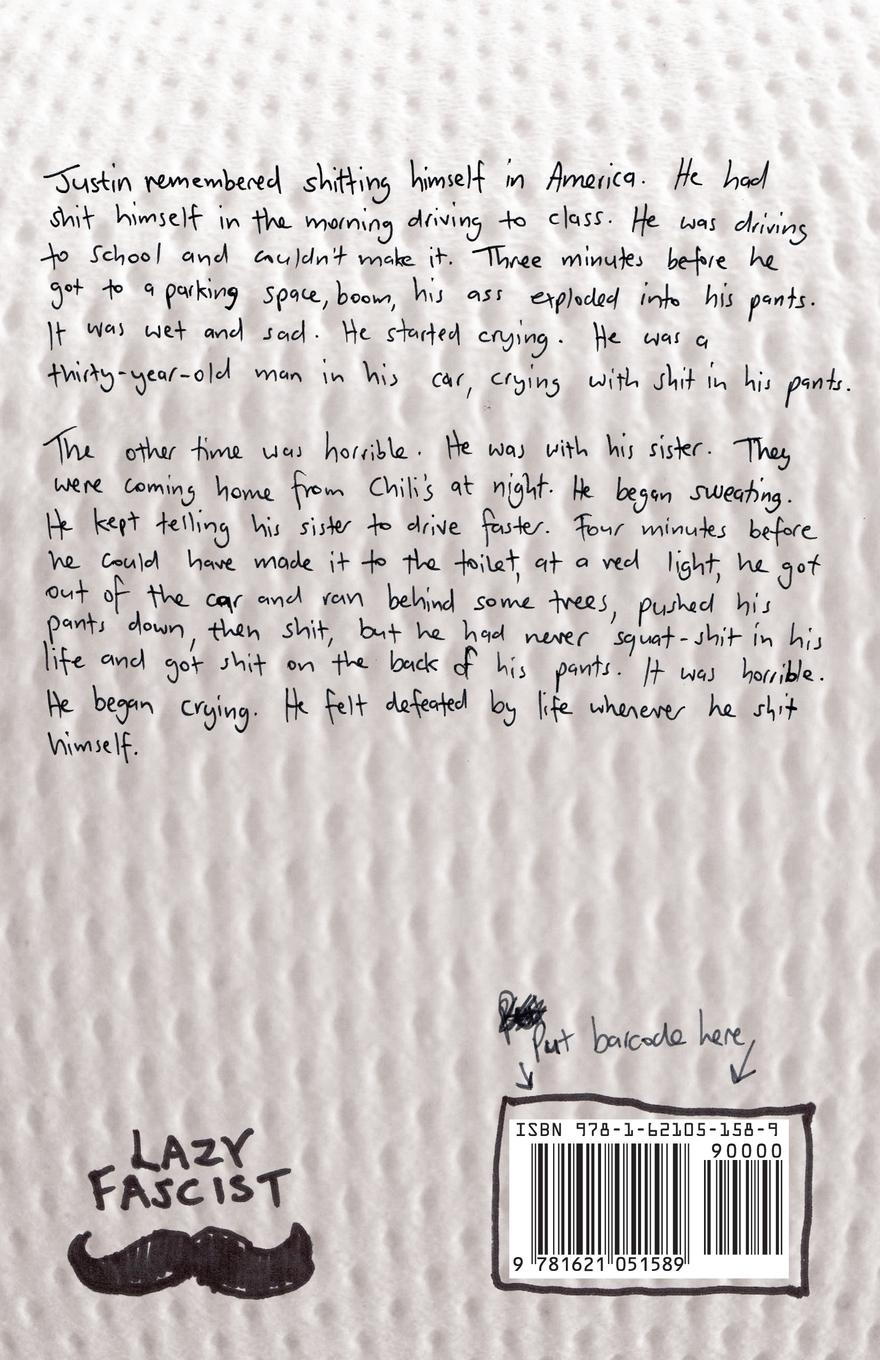 Justin remembered shitting himself in America. He had
shit himself in the morning driving to class. He was driving
to school and couldn't make it. Three minutes before he
got to a parking space, boom, his ass exploded into his pants.
It was wet and sad. He started crying. He was a
thirty-year-old man in his car, crying with shit in his pants.
The other time was horrible. He was with his sister. They
were coming home from Chili's at night. He began sweating.
He kept telling his sister to drive faster. Four minutes before
he could have made it to the toilet, at a red light, he got
out of the car and ran behind some trees, pushed his
pants down, then shit, but he had never squat-shit in his
life and got shit on the back of his pants. It was horrible.
He began crying. He felt defeated by life whenever he shit
himself.
Put barcode here
LAZY
FASCIST
ISBN 978-1-62105-158-9
90000
9 781621 051589